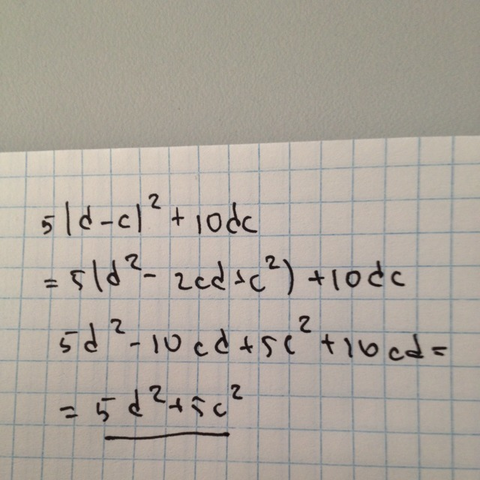 5(d-c)² + 10dc
= 5(d² - 2cd + c²) + 10dc
5d² - 10cd + 5c² + 10cd =
= 5d² + 5c²